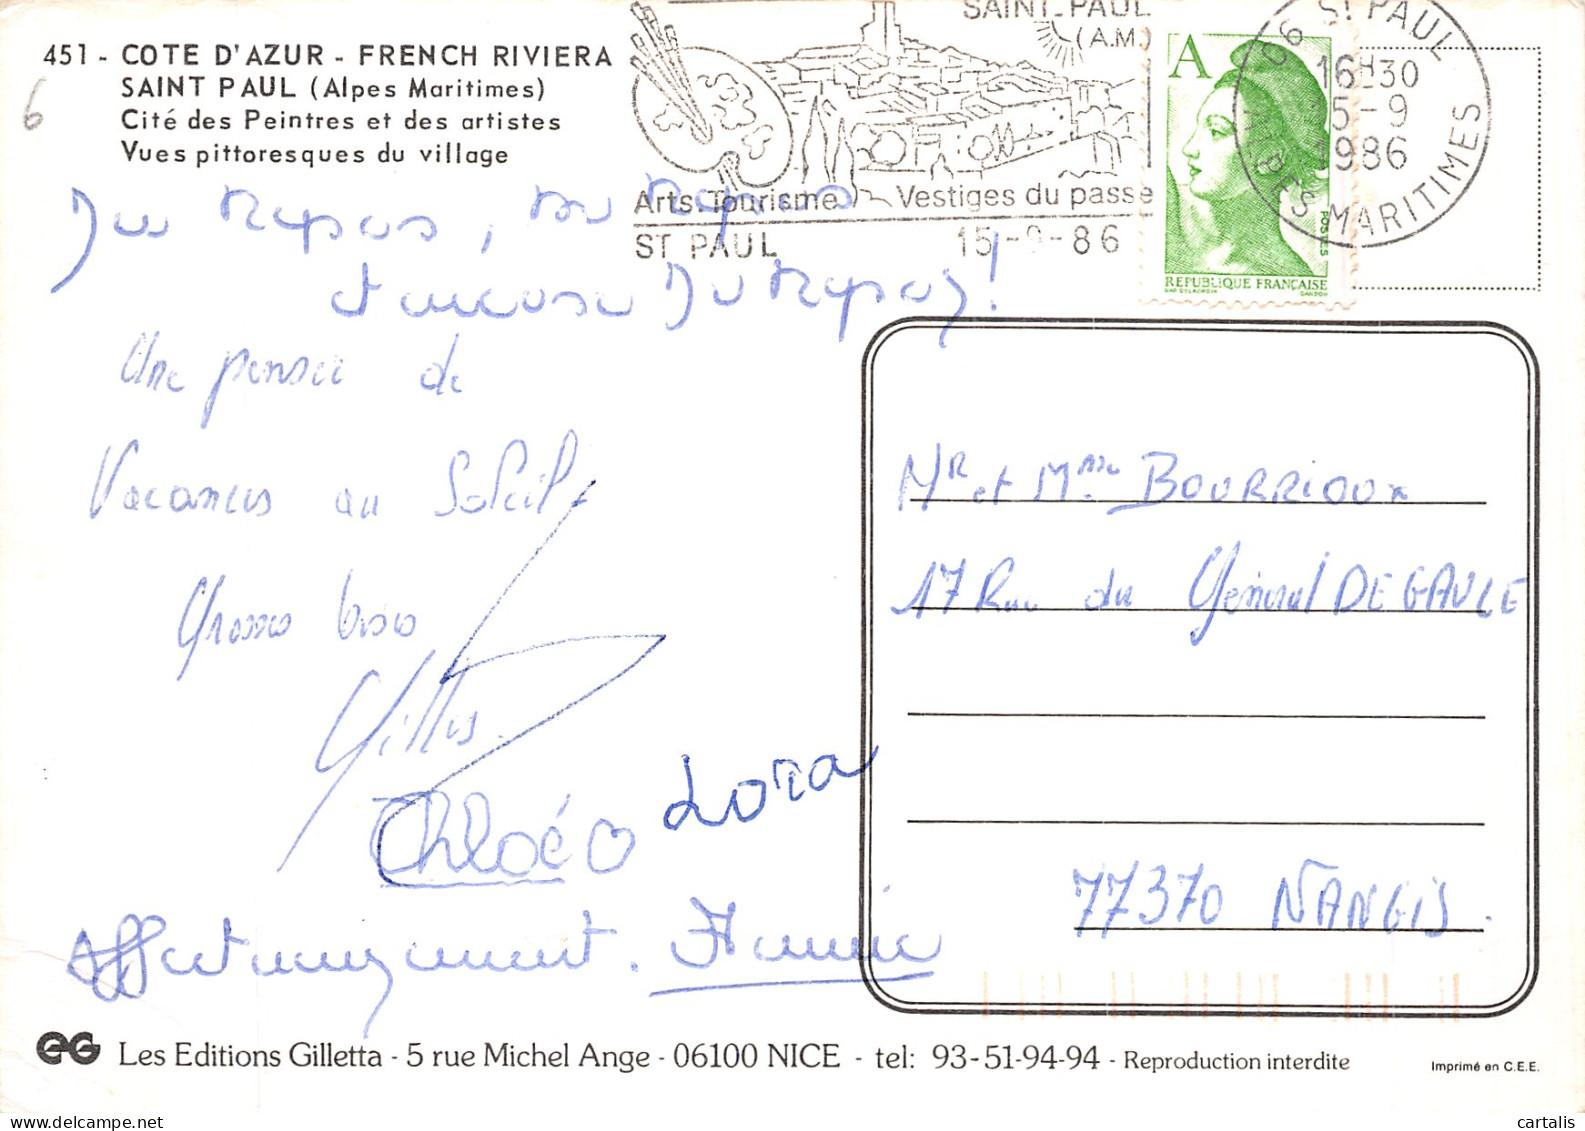 451 - COTE D'AZUR - FRENCH RIVIERA
SAINT PAUL (Alpes Maritimes)
Cité des Peintres et des artistes
Vues pittoresques du village
6
SAINT-PAUL
(A.M.)
Arts.Tourisme
Vestiges du passe
ST PAUL
15-9-86
A
POSTES
REPUBLIQUE FRANÇAISE
GANDON
06 St PAUL
16H30
15-9
1986
ALPES MARITIMES
Du repos, du repos
et encore Du Repos!
Une pensée de
Vacances au Soleil
Grosses bises
Gilles
Chloé
Lora
Affectueusement. Annie
Mr et Mme BOURRIOUX
17 Rue du Général DE GAULE
77370 NANGIS.
EG Les Editions Gilletta - 5 rue Michel Ange - 06100 NICE - tel: 93-51-94-94 - Reproduction interdite
Imprimé en C.E.E.
cartalis